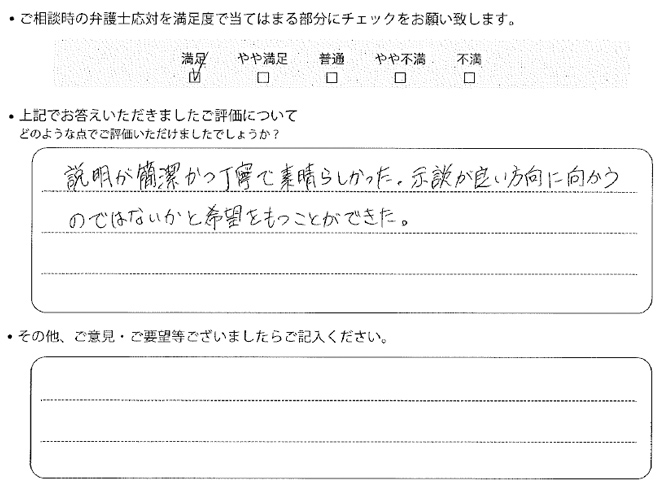 • ご相談時の弁護士応対を満足度で当てはまる部分にチェックをお願い致します。
満足 やや満足 普通 やや不満 不満
☑ □ □ □ □
• 上記でお答えいただきましたご評価について
どのような点でご評価いただけましたでしょうか？
説明が簡潔かつ丁寧で素晴らしかった。示談が良い方向に向かう
のではないかと希望をもつことができた。
• その他、ご意見・ご要望等ございましたらご記入ください。